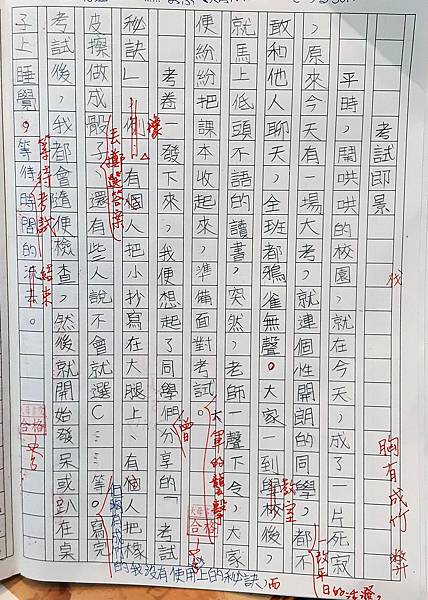 考試即景
平時，鬧哄哄的校園，就在今天，成了一片死寂
，原來今天有一場大考，就連個性開朗的同學，都不
敢和他人聊天，全班都鴉雀無聲。大家一到學校後，
就馬上低頭不語的讀書，突然，老師一聲下令，大家
便紛紛把課本收起來，準備面對考試。
考卷一發下來，我便想起了同學們分享的「考試
秘訣」，例，有個人把小抄寫在大腿上、有個人把橡
皮擦做成骰子，還有些人說不會就選C……等。寫完
考試後，我都會隨便檢查，然後就開始發呆或趴在桌
子上睡覺，等待時間的流去。
胸有成竹
教室
一改平日的活潑，
大軍的襲擊
曾
合格
像
丟擲選答案
但胸有成竹的我沒有使用上的秘訣，而
合格
等待考試結束